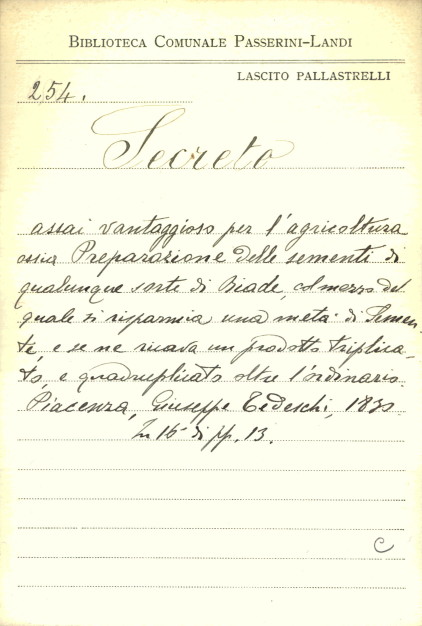 BIBLIOTECA COMUNALE PASSERINI-LANDI
LASCITO PALLASTRELLI
254.
Secreto
assai vantaggioso per l'agricoltura
ossia Preparazione delle sementi di
qualunque sorte di Biade, col mezzo del
quale si risparmia una metà di Semen-
te, e se ne ricava un prodotto triplica-
to, e quadruplicato oltre l'ordinario.
Piacenza, Giuseppe Tedeschi, 1830
In 16° di pp. 13.
C